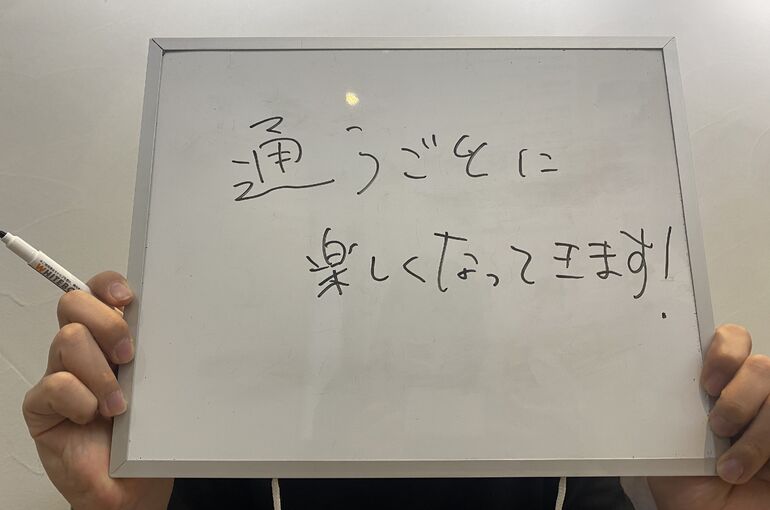 通うごとに
楽しくなってきます!
WHITEBO